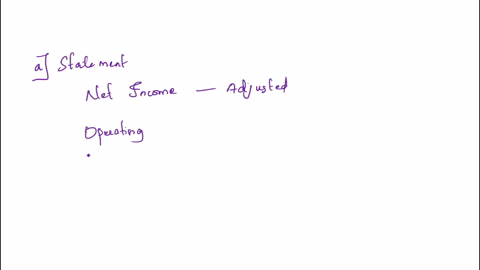 a] Statement
Net Income — Adjusted
Operating